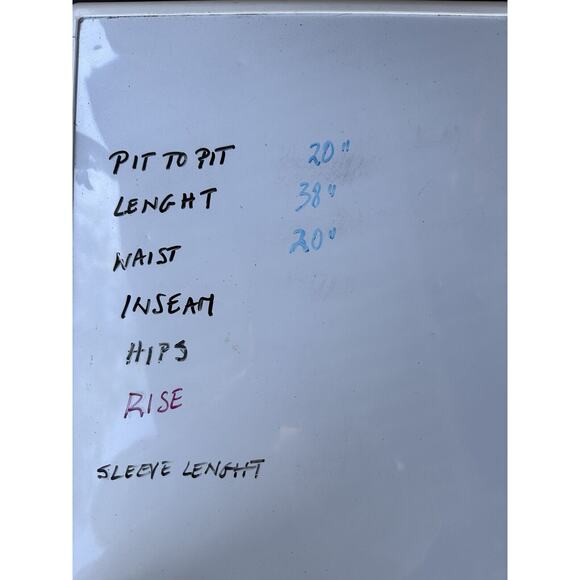 PIT TO PIT 20"
LENGHT 38"
WAIST 20"
INSEAM
HIPS
RISE
SLEEVE LENGHT